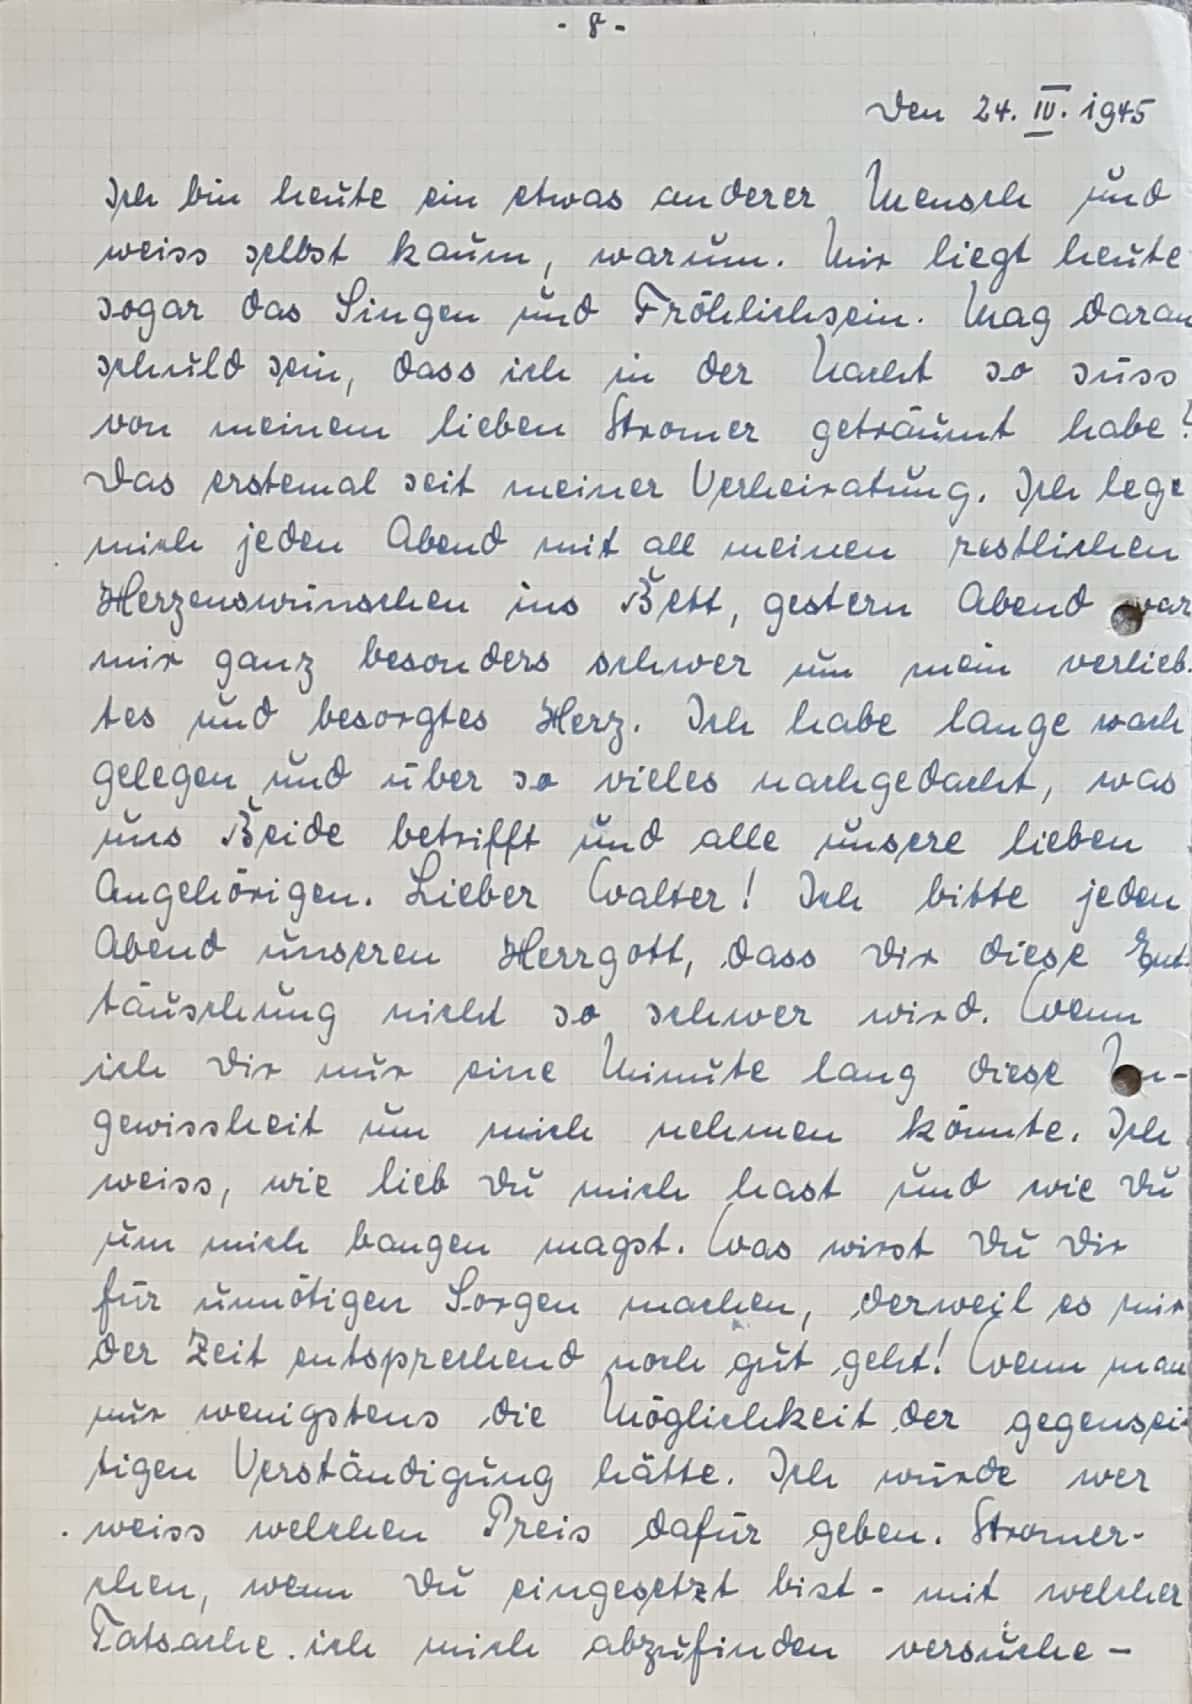 - 8 -
Den 24. IV. 1945
Ich bin heute ein etwas anderer Mensch und
weiss selbst kaum, warum. Mir liegt heute
sogar das Singen und Fröhlichsein. Mag daran
schuld sein, dass ich in der Nacht so süss
von meinem lieben Stromer geträumt habe?
Das erstemal seit meiner Verheiratung. Ich lege
mich jeden Abend mit all meinen restlichen
Herzenswünschen ins Bett, gestern Abend war
mir ganz besonders schwer um mein verlieb-
tes und besorgtes Herz. Ich habe lange wach
gelegen und über so vieles nachgedacht, was
uns Beide betrifft und alle unsere lieben
Angehörigen. Lieber Walter! Ich bitte jeden
Abend unseren Herrgott, dass Dir diese Ent-
täuschung nicht so schwer wird. Wenn
ich Dir nur eine Minute lang diese Un-
gewissheit um mich nehmen könnte. Ich
weiss, wie lieb Du mich hast und wie Du
um mich bangen magst. Was wirst Du Dir
für unnötigen Sorgen machen, derweil es mir
der Zeit entsprechend noch gut geht! Wenn man
nur wenigstens die Möglichkeit der gegensei-
tigen Verständigung hätte. Ich würde wer
weiss welchen Preis dafür geben. Stromer-
chen, wenn Du eingesetzt bist - mit welcher
Tatsache ich mich abzufinden versuche -